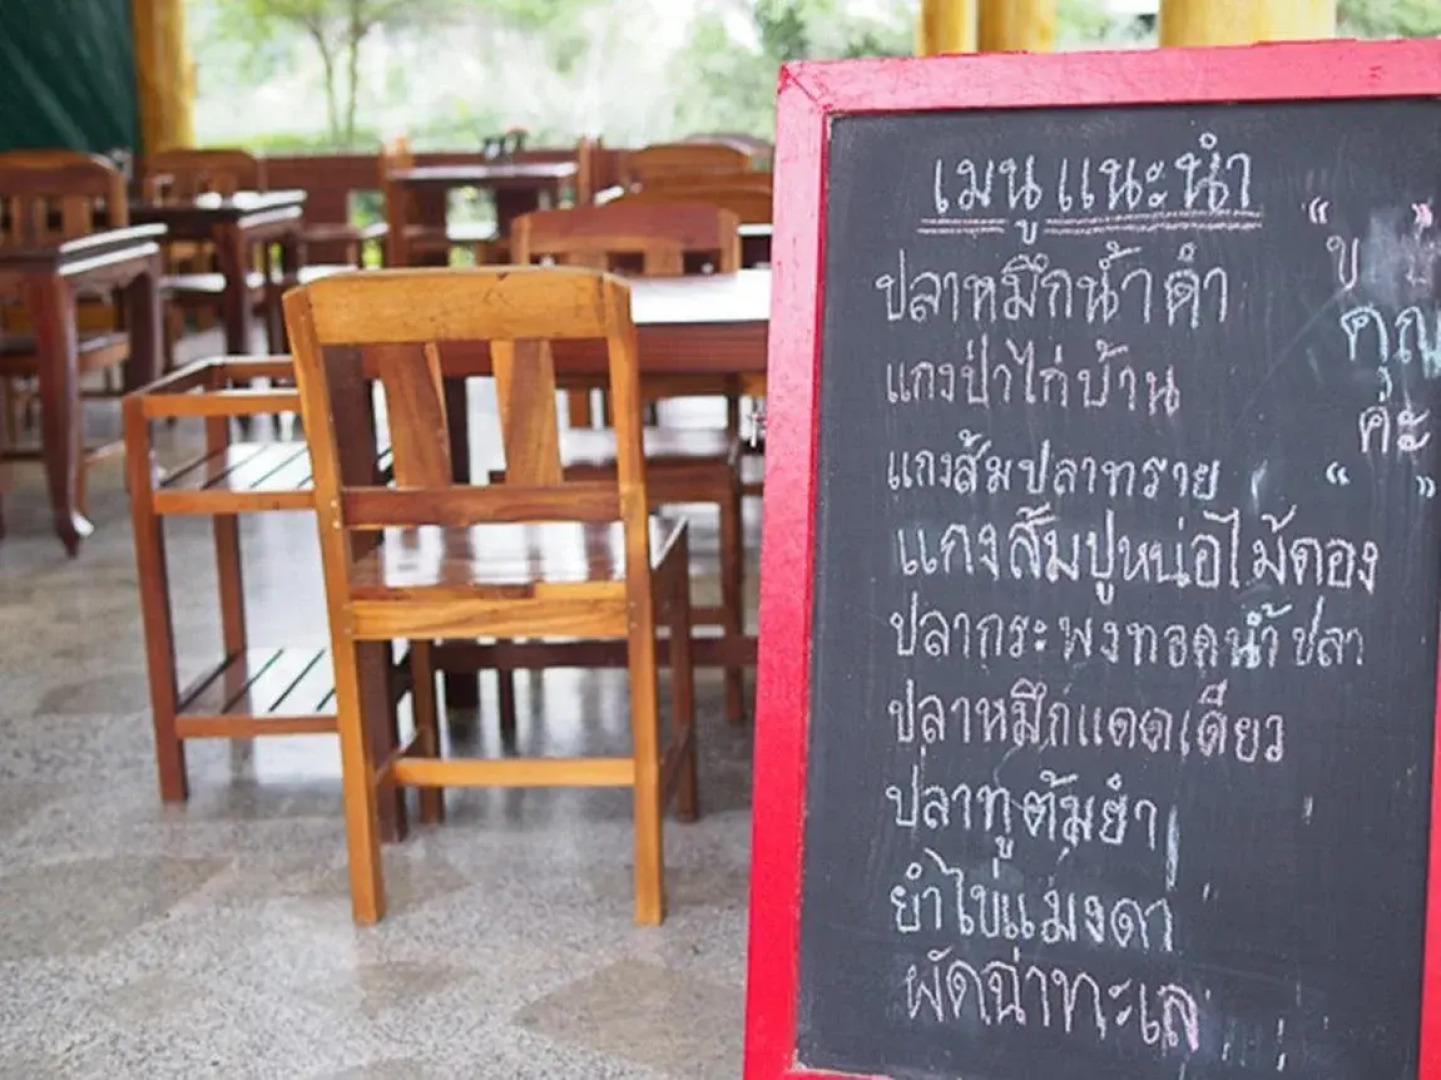 เมนูแนะนำ
ปลาหมึกน้ำดำ
แกงป่าไก่บ้าน
แกงส้มปลาทราย
แกงส้มปูหน่อไม้ดอง
ปลากระพงทอดน้ำปลา
ปลาหมึกแดดเดียว
ปลาทูต้มยำ
ยำไข่แมงดา
ผัดฉ่าทะเล
คุณ
ค่ะ